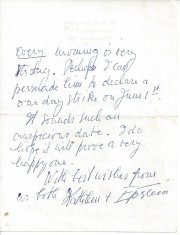 Every morning is very
strong. Perhaps I can
persuade him to declare a
one day strike on June 1st.
It sounds such an
auspicious date. I do
hope it will prove a very
happy one.
With best wishes from
us both Kathleen &